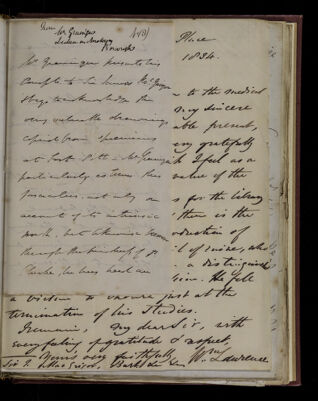 From Mr Grainger
Lecturer on Anatomy
Mr Grainger presents his
compts to Sir James McGrigor
& begs to acknowledge the
very valuable drawings
copied from specimens
at Fort Pitt. Mr Grainger
particularly esteems these
not only on
account of its intrinsic
worth, but likewise
through the kindness of Sir
he has been
Place
1834.
to the medical
my sincere
able present,
very gratefully
I feel as a
value of the
s for the library
then is the
production of
of mine, who
a distinguished
He fell
a victim to
just at the
termination of his Studies.
I remain, my dear Sir, with
every feeling of gratitude & respect,
Yours very faithfully
Wm Lawrence
Sir J. MacGrigor, Bart